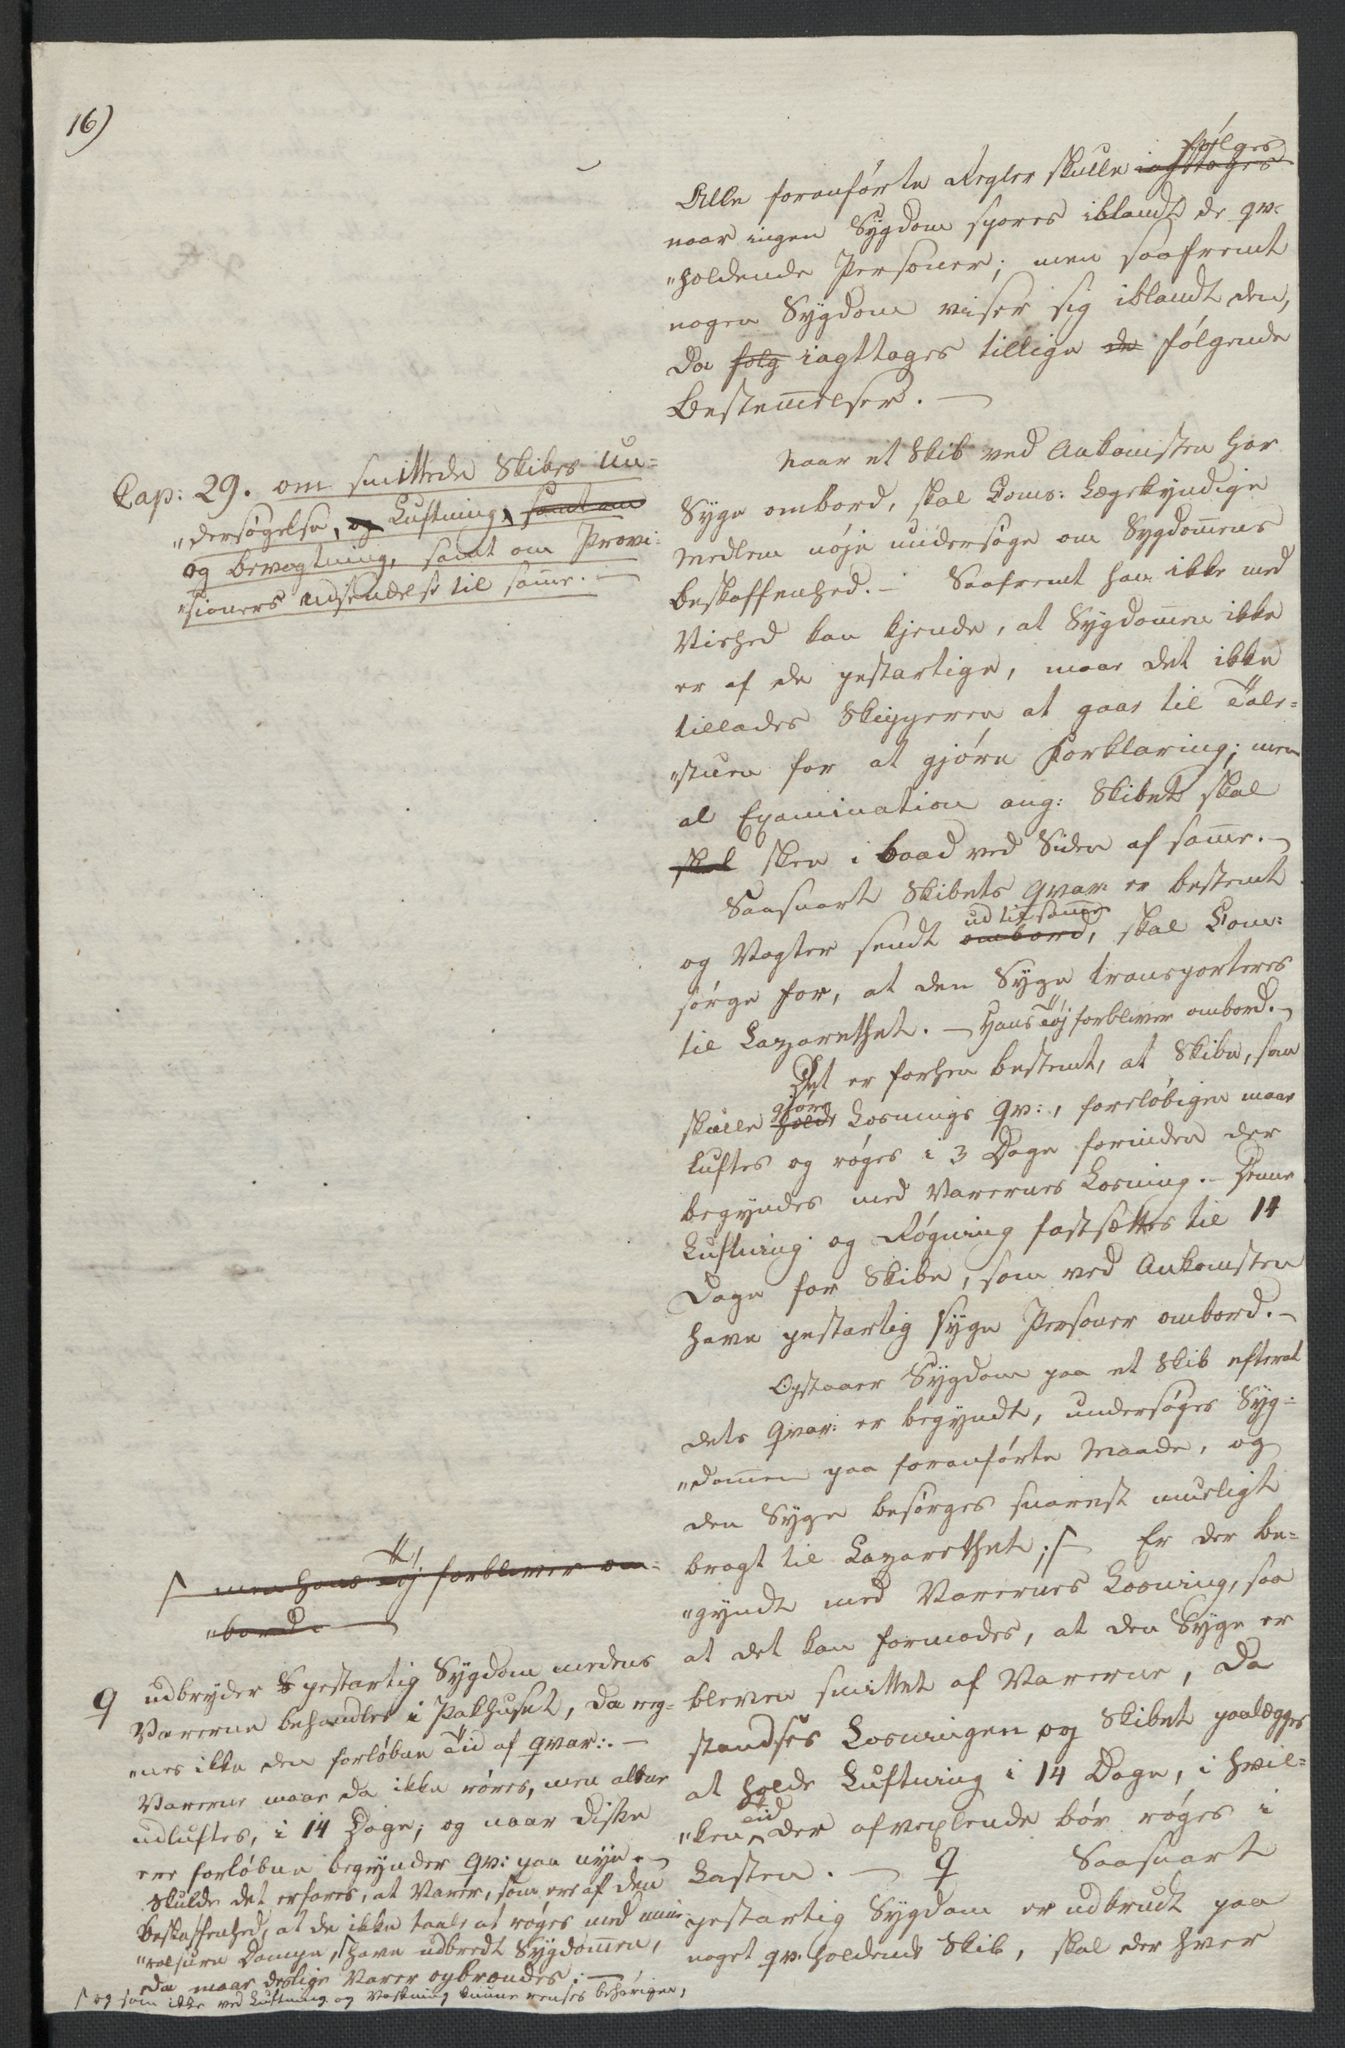 16)
følges
Alle foranførte Regler skulle iagttages
naar ingen Sÿgdom spores iblandt de qv:
"holdende Personer; men saafremt
nogen Sÿgdom viser sig iblandt den,
da følg iagttages tillige de følgende
Bestem̅elser. —
Cap: 29. om smittede Skibes Un=
"dersøgelse, og Luftning, samt om
og bevogtning, samt om Provi=
"sioners udsendelse til sam̅e. —
Naar et Skib ved Ankomsten har
Syge ombord, skal Coms: Lægekyndige
Medlem nøje undersøge om Sygdom̅ens
beskaffenhed. — Saafremt han ikke med
Vished kan kjende, at Sÿgdom̅en ikke
er af de pestartige, maae det ikke
tillades Skipperen at gaae til Tale=
"stuen for at gjøre Forklaring; men
al Examination ang: Skibet skal
skal skee i baad ved Siden af sam̅e. —
Saasnart Skibets Qvar: er bestemt
ud til sam̅e
og Vagter sendt ombord, skal Com:
sørge for, at den Syge transporteres
til Lazarethet. — Hans Tøj forbliver ombord. —
Det er forhen bestemt, at Skibe, som
gjøre
skulle holde Losnings Qv:, foreløbigen maae
luftes og røges i 3 Dage forinden der
begyndes med Varernes Losning. — Denne
Luftning og Røgning fastsættes til 14
Dage for Skibe, som ved Ankomsten
have pestartig syge Personer ombord. —
Opstaaer Sÿgdom paa et Skib efterat
dets Qvar: er begyndt, undersøges Syg=
"dom̅en paa foranførte Maade, og
den Syge besørges snarest mueligt
bragt til Lazarethet; ⌠ — Er der be=
"gyndt med Varernes Losning, saa
at det kan formodes, at den Syge er
bleven smittet af Varerne, da
standses Losningen og Skibet paalægges
at holde Luftning i 14 Dage, i hvil=
Tid
"ken der afvexlende bør røges i
Lasten. — q Saasnart
pestartig Sÿgdom er udbrudt paa
noget qv: holdende Skib, skal der hver
⌠ men hans Tøj forbliver om=
"bord. —
q udbrÿder pestartig Sÿgdom medens
Varerne behandles i Pakhuset, da reg=
"nes ikke den forløbne Tid af Qvar:. —
Varerne maae da ikke røres, men alene
udluftes, i 14 Dage; og naar disse
ere forløbne begÿnder Qv: paa nÿe. —
Skulde det erfares, at Varer, som ere af den
Beskaffenhed, at de ikke taale at røges med mine=
"ralsure Dampe, ⌠ have udbredt Sÿgdom̅en,
da maae deslige Varer opbrændes. —
⌠ og som ikke ved Luftning og Vaskning kunne renses behørigen,